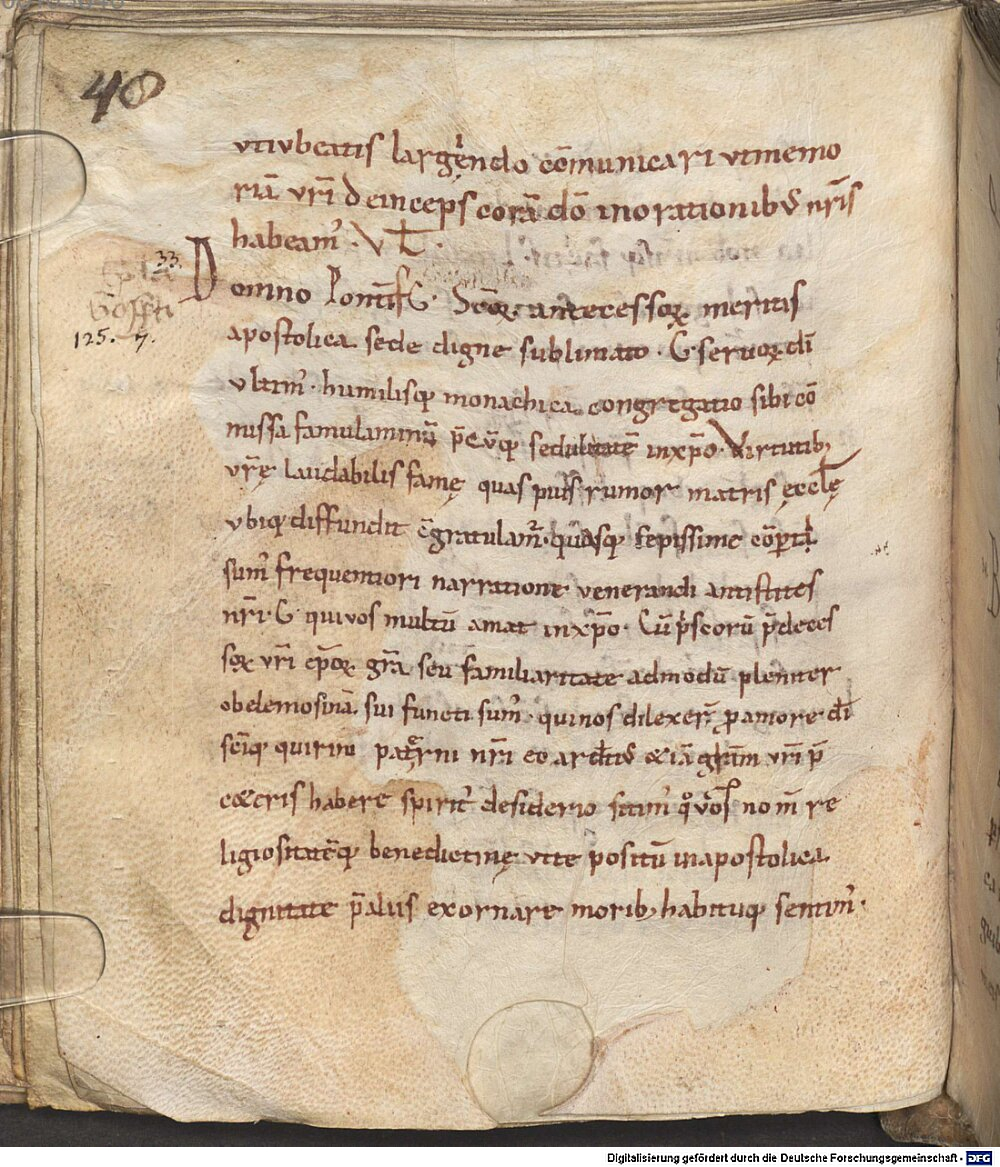 40
vti vbeatis largiendo cōmunicari vt memo
riā vr̄i deinceps corā dō in orationibꝰ nr̄is
habeam̾. VƗ.
33.
125. 7.
Domno Pontif G. Scōꝝ antecessoꝝ meritis
apostolica sede digne sublimato. G. seruoꝝ dī
vltim̾. humilisq; monachica congregatio sibi cō
missa famulaminū p̄ces q; sedulitatē in xp̄o. Virtutib;
vr̄ę laudabilis famę quas pius rumor matris ęcclę
vbiq; diffundit cōgratulam̾. quasq; sepissime cōp̱ti
sum̾ frequentiori narratione venerandi antistites
nr̄i G qui vos multū amat in xp̄o. Cū p̄scorū p̄deces
soꝝ vr̄i ep̄oꝝ gr̄a seu familiaritate admodū pleniter
ob elemosinā sui functi sum̾. qui nos dilexer̄ ꝓ amore dī
scīq; quirini patr̄ni nr̄i eo ardētiꝰ & iā gr̄am vr̄i p̄
c&eris habere spirit̾ desiderio sitim̾ q̊ vos nom̄ re
ligiositatēq; benedictinę vite positū in apostolica
dignitate p̄ aliis exornare morib; habituq; sentim̾.
Digitalisierung gefördert durch die Deutsche Forschungsgemeinschaft - DFG